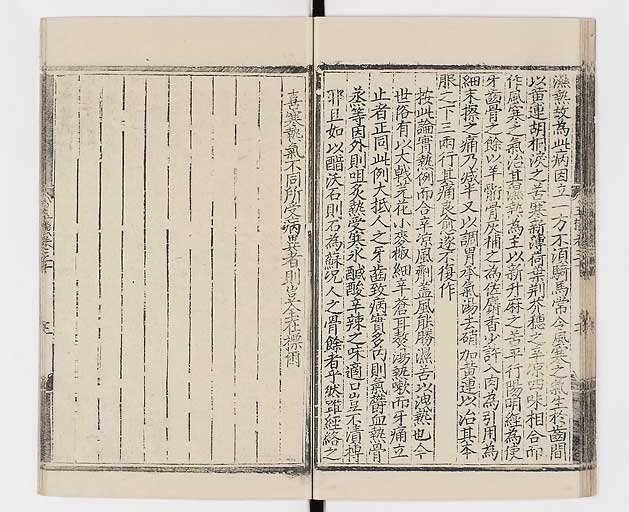 濕熱故為此病因立一方不須騎馬常令風寒之氣生於齒間
以黃連胡桐淚之苦寒新薄荷葉荊芥穗之辛凉四味相合而
作風寒之氣治其濕熱為主以新升麻之苦平行陽明經為使
牙齒骨之餘以羊䯒骨灰補之為佐麝香少許入肉為引用為
細末擦之痛乃減半又以調胃承氣湯去硝加黃連以治其本
服之下三兩行其痛良愈遂不復作
按此論實熱例而合辛凉風劑盖風能勝濕苦以洩熱也今
世俗有以大戟芫花小麥椒細辛蒼耳熬湯熱漱而牙痛立
止者正同此例大抵人之牙齒致病實多內則氣欝血熱骨
蒸等因外則咀炙熱受寒氷醎酸辛辣之味適口豈不瀆摶
耶且如以醋沃石則石為蘇況人之骨餘者乎然雖經絡之
喜寒熱氣不同所受病異者則豈全在標爾